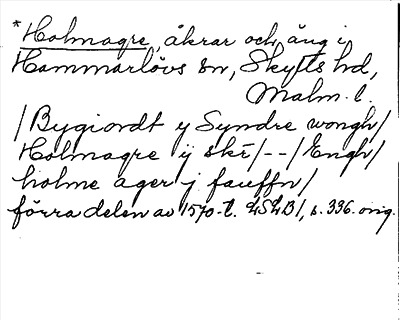 *Holmagre, åkrar och äng i
Hammarlövs sn, Skytts hd,
Malm. l.
/Bygiordt y Syndre wongh/
Holmagre ÿ skÿ/--/Engh/
holme ager j fauffn/
förra delen av 1570-t. LSLB1, s. 336. orig.